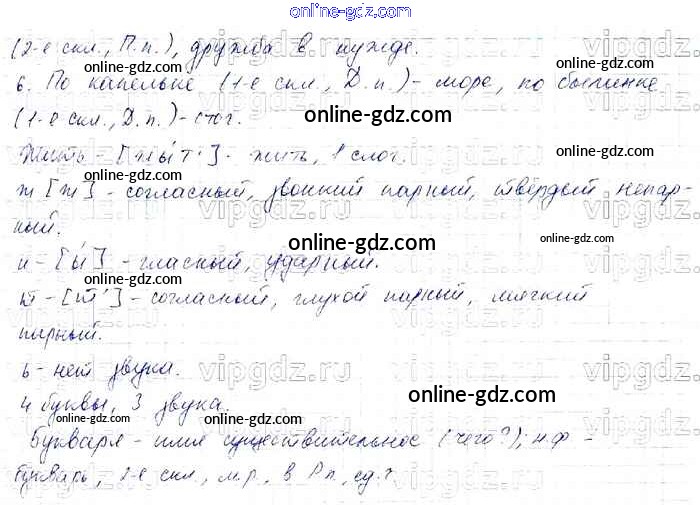 online-gdz.com
(2-е скл., П.п.), дружба в нужде.
6. По капельке (1-е скл., Д.п.) - море, по былинке
(1-е скл., Д.п.) - стог.
Жить - [жы́т'] - жить, 1 слог.
ж [ж] - согласный, звонкий парный, твёрдый непар-
ный.
и - [ы́] - гласный, ударный.
т - [т'] - согласный, глухой парный, мягкий
парный.
ь - нет звука.
4 буквы, 3 звука.
Букваря - имя существительное (чего?); н.ф. -
букварь, 2-е скл., м.р., в Р.п., ед.ч.
online-gdz.com
online-gdz.com
online-gdz.com
online-gdz.com
online-gdz.com
online-gdz.com
online-gdz.com
online-gdz.com
online-gdz.com
online-gdz.com
vipgdz.ru
vipgdz.ru
vipgdz.ru
vipgdz.ru